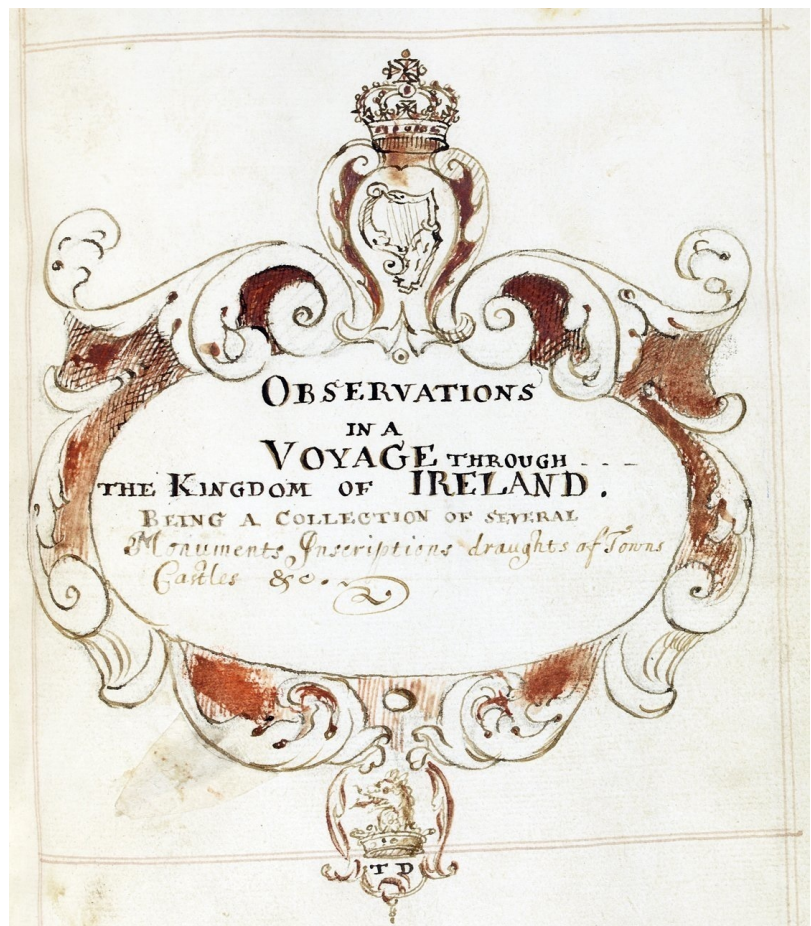 OBSERVATIONS
IN A
VOYAGE THROUGH
THE KINGDOM OF IRELAND.
BEING A COLLECTION OF SEVERAL
Monuments Inscriptions draughts of Towns
Castles &c.
T D